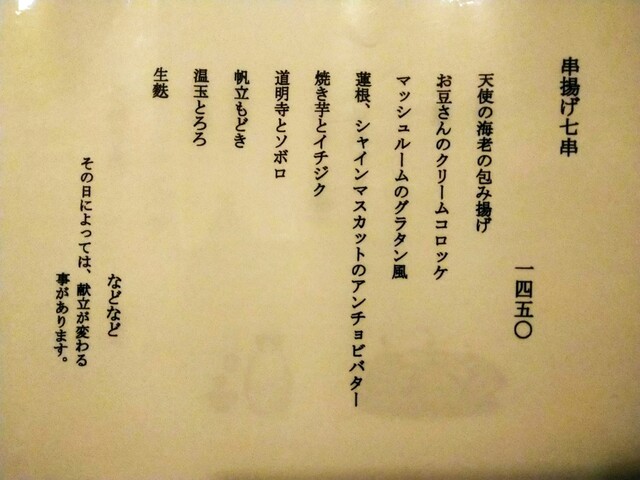 串揚げ七串
一四五〇
天使の海老の包み揚げ
お豆さんのクリームコロッケ
マッシュルームのグラタン風
蓮根、シャインマスカットのアンチョビバター
焼き芋とイチジク
道明寺とソボロ
帆立もどき
温玉とろろ
生麩
などなど
その日によっては、献立が変わる
事があります。